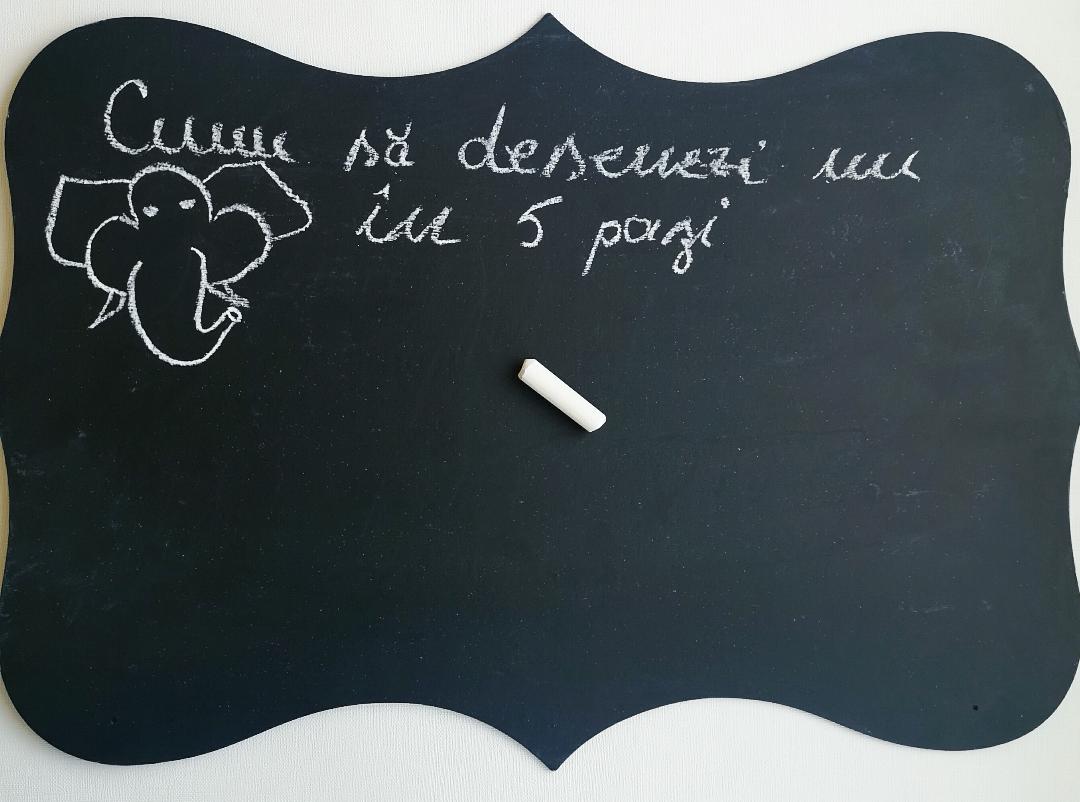 Cum să desenezi un
în 5 pazi